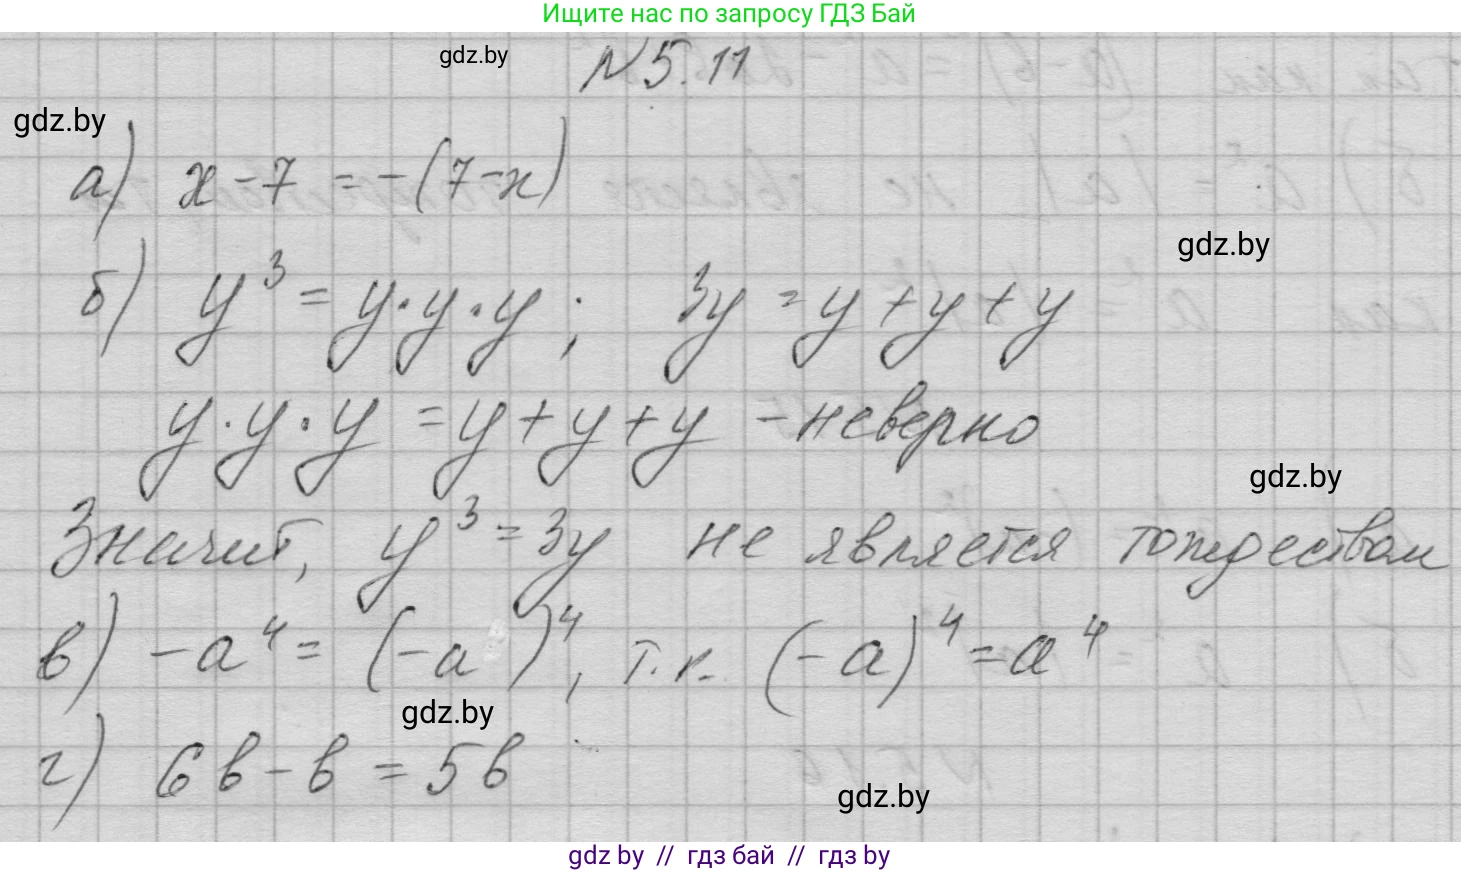 Ищите нас по запросу ГДЗ Бай
gdz.by
N 5.11
gdz.by
а) x - 7 = -(7-x)
gdz.by
б) y³ = y·y·y ; 3y = y + y + y
y·y·y = y + y + y - неверно
gdz.by
Значит, y³ = 3y не является тождеством
в) -a⁴ = (-a)⁴, т.к. (-a)⁴ = a⁴
gdz.by
г) 6b - b = 5b
gdz.by
gdz by // гдз бай // гдз by